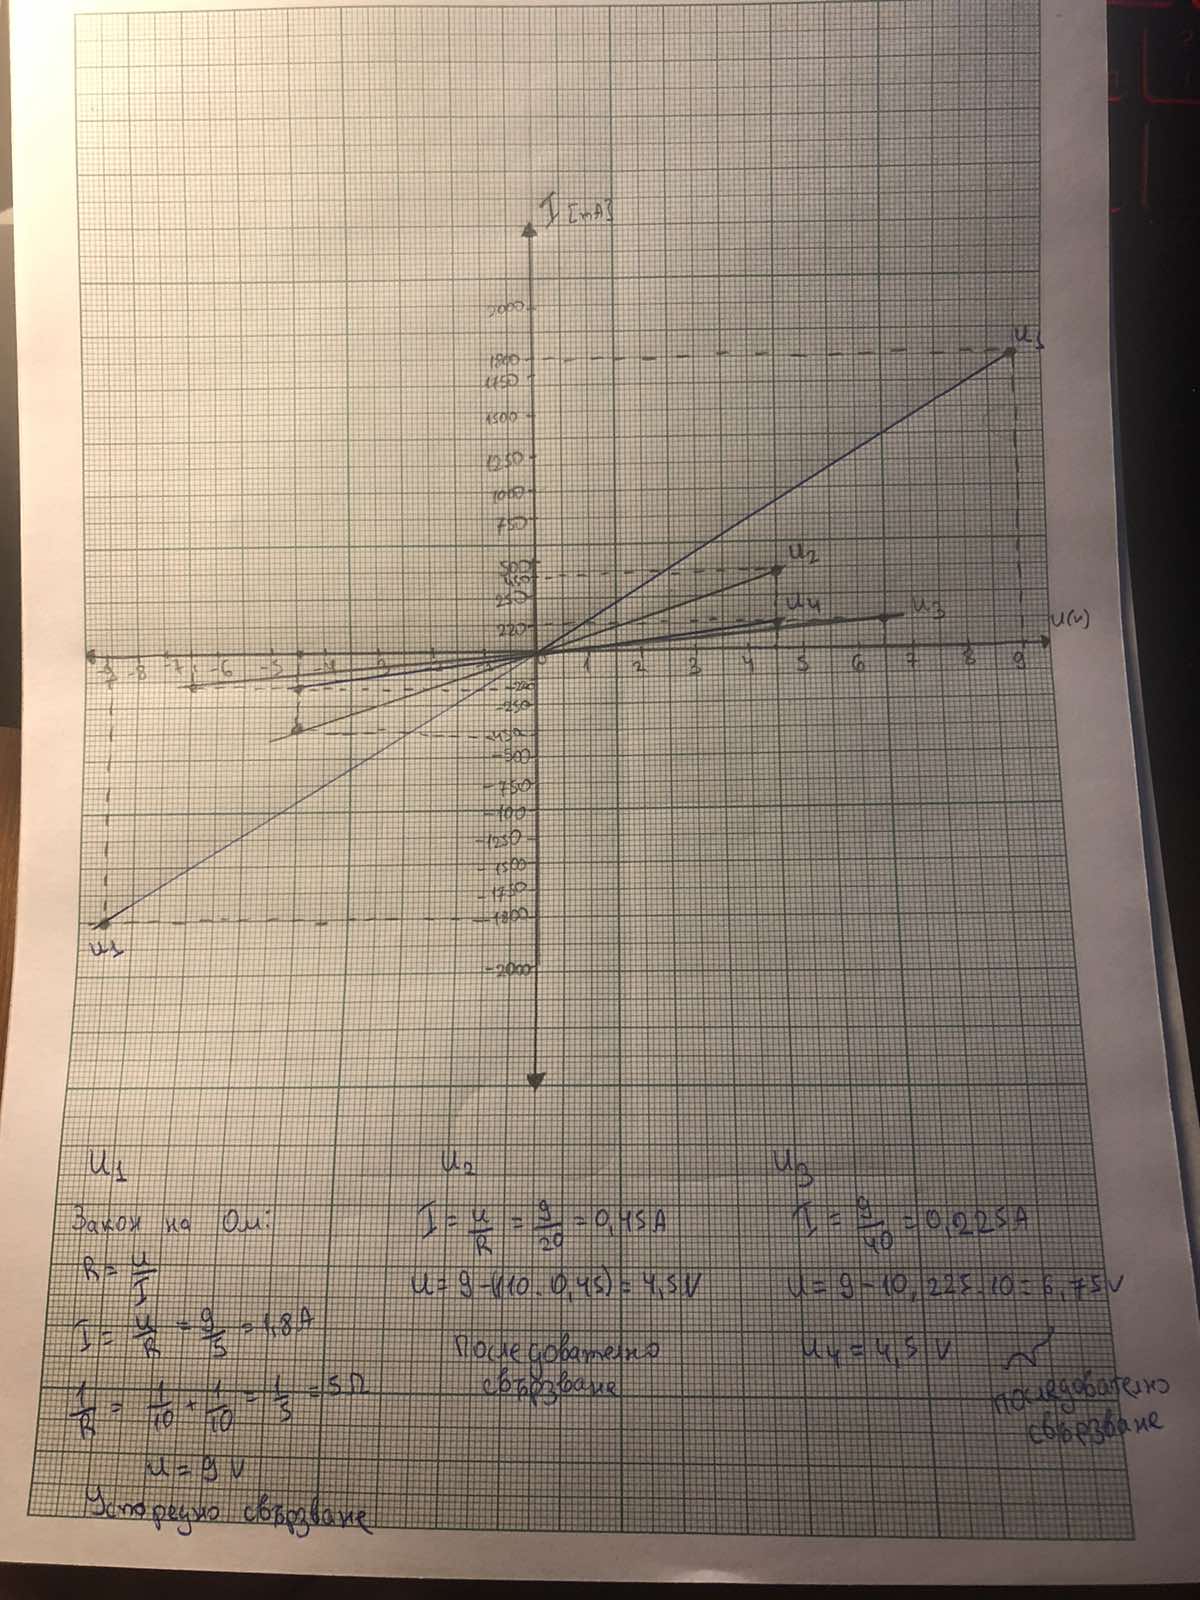 I [mA]
2000
1800
1750
1500
1250
1000
750
500
450
250
220
U1
U2
U4
U3
U(V)
-8 -7 -6 -5 -4 0 1 2 3 4 5 6 7 8 9
-250
-450
-500
-750
-100
-1250
-1500
-1750
-1800
-2000
U1
U1
Закон на Ом:
R = U/I
I = U/R = 9/5 = 1,8A
1/R = 1/10 + 1/10 = 1/5 = 5Ω
U = 9V
Успоредно свързване
U2
I = U/R = 9/20 = 0,45A
U = 9-(10.0,45) = 4,5V
Последователно
свързване
U3
I = 9/40 = 0,225A
U = 9-10,225.10 = 6,75V
U4 = 4,5V
последователно
свързване